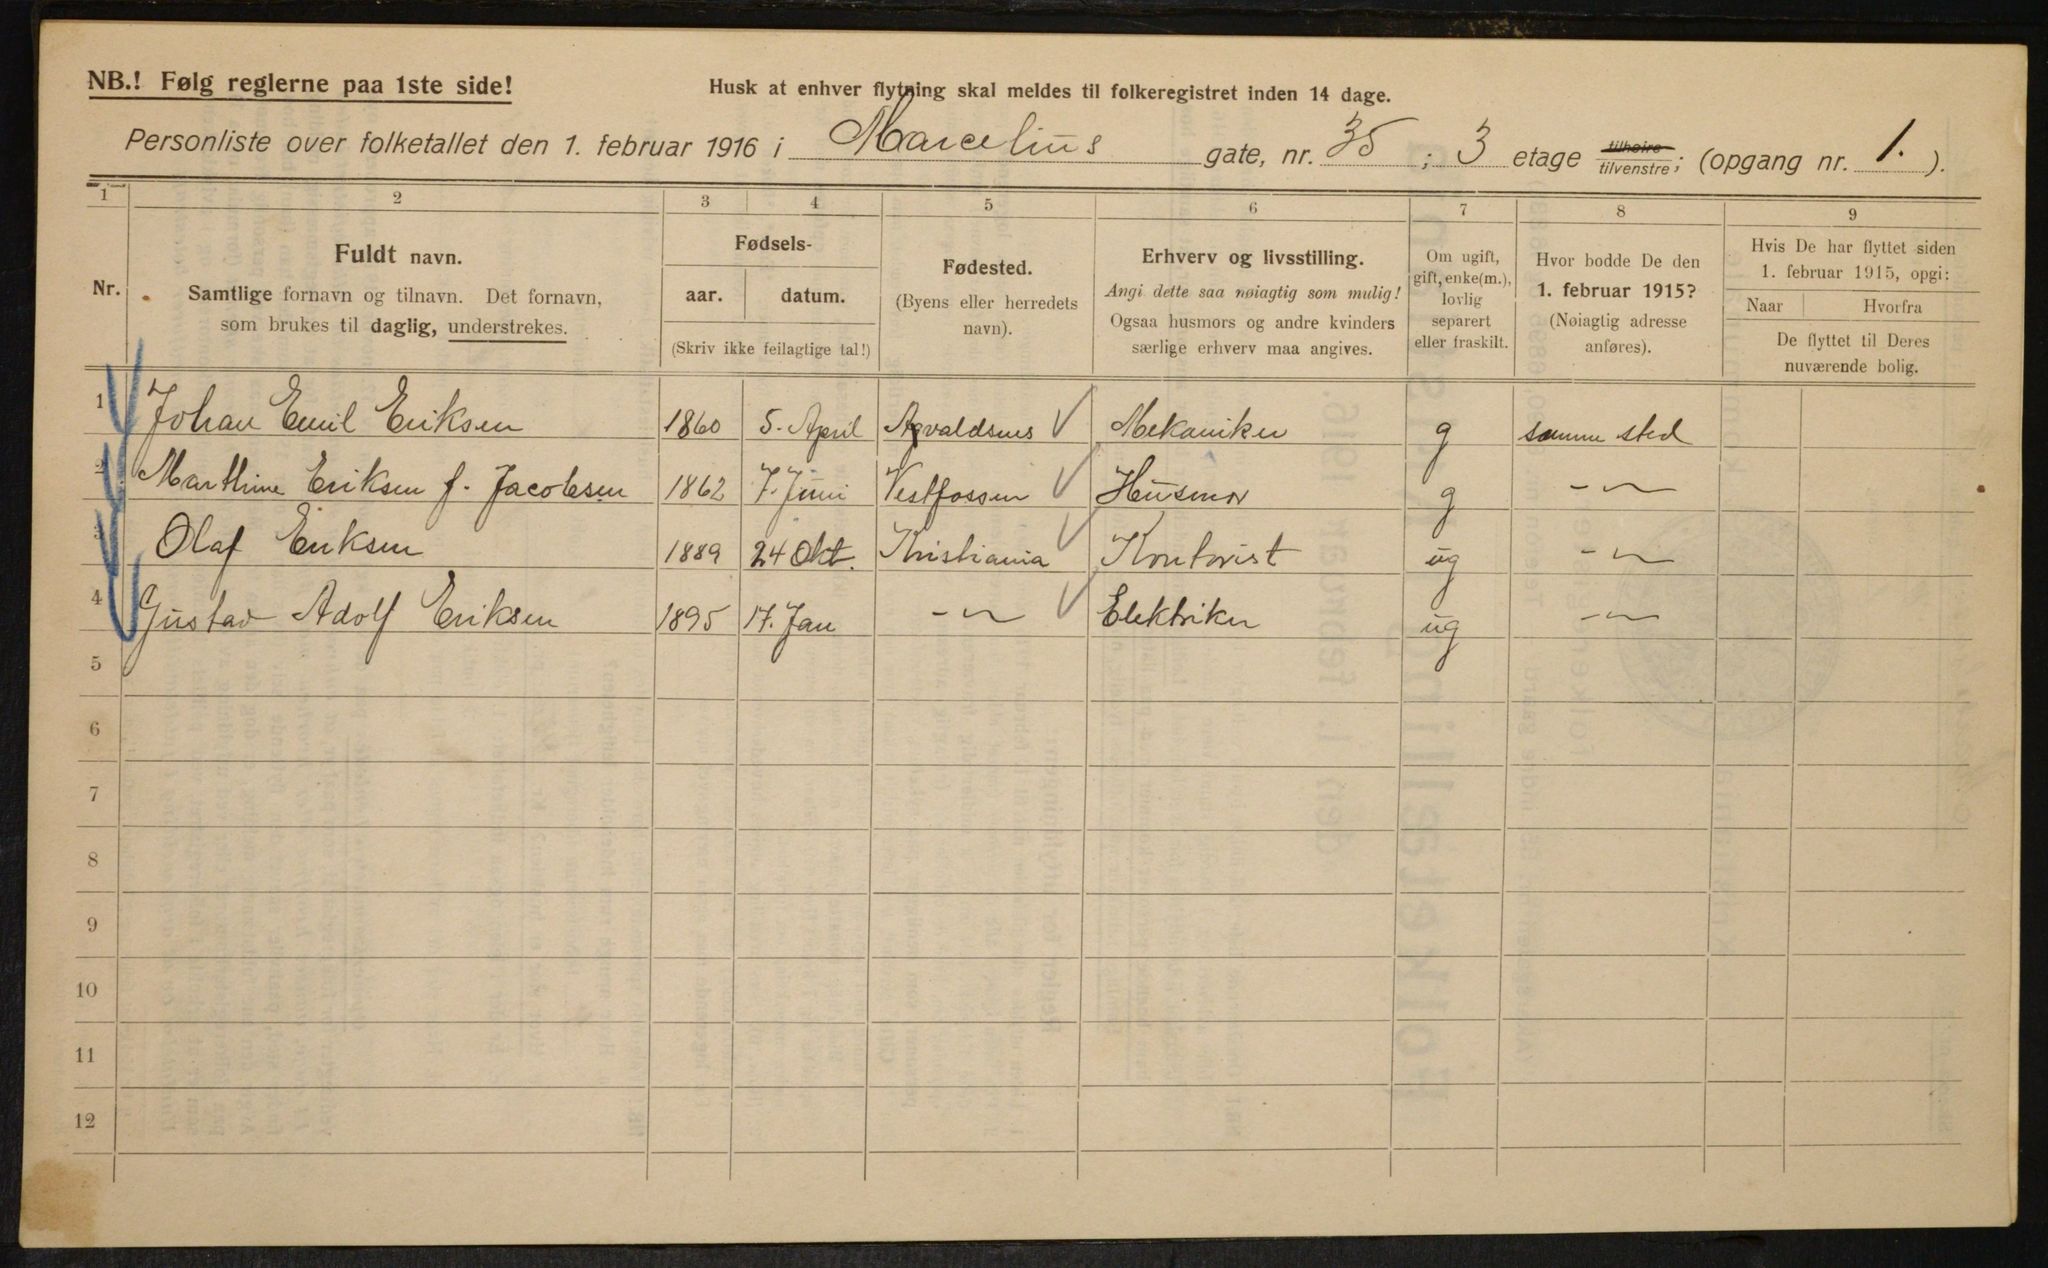 NB.! Følg reglerne paa 1ste side!
Husk at enhver flytning skal meldes til folkeregistret inden 14 dage.
Personliste over folketallet den 1. februar 1916 i Marcelius gate, nr. 35 ; 3 etage tilhøire tilvenstre; (opgang nr. 1. ).
1 2 3 4 5 6 7 8 9
Nr.
Fuldt navn.
Samtlige fornavn og tilnavn. Det fornavn,
som brukes til daglig, understrekes.
Fødsels-
aar. datum.
(Skriv ikke feilagtige tal!)
Fødested.
(Byens eller herredets
navn).
Erhverv og livsstilling.
Angi dette saa nøiagtig som mulig!
Ogsaa husmors og andre kvinders
særlige erhverv maa angives.
Om ugift,
gift, enke(m.),
lovlig
separert
eller fraskilt.
Hvor bodde De den
1. februar 1915?
(Nøiagtig adresse
anføres).
Hvis De har flyttet siden
1. februar 1915, opgi:
Naar Hvorfra
De flyttet til Deres
nuværende bolig.
1 Johan Emil Eriksen 1860 5. April Agvaldsnes Mekaniker g samme sted
2 Marthine Eriksen f. Jacobsen 1862 7. Juni Vestfossen Husmor g -〃-
3 Olaf Eriksen 1889 24 Okt. Kristiania Kontorist ug -〃-
4 Gustav Adolf Eriksen 1895 17. Jan -〃- Elektriker ug -〃-
5
6
7
8
9
10
11
12